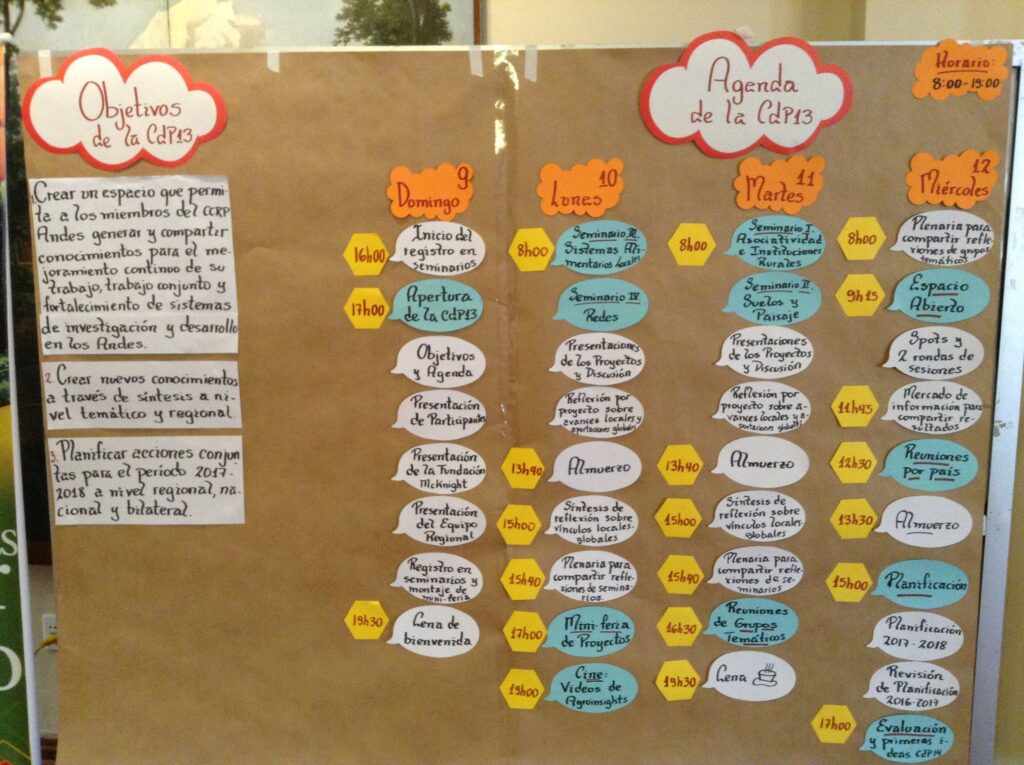 Objetivos
de la CdP13
1. Crear un espacio que permi-
ta a los miembros del CCRP
Andes generar y compartir
conocimientos para el me-
joramiento continuo de su
trabajo, trabajo conjunto y
fortalecimiento de sistemas
de investigación y desarrollo
en los Andes.
2. Crear nuevos conocimientos
a través de síntesis a ni-
vel temático y regional.
3. Planificar acciones conjun-
tas para el período 2017-
2018 a nivel regional, na-
cional y bilateral.
Agenda
de la CdP13
Horario:
8:00-19:00
9
Domingo
16h00
Inicio del
registro en
seminarios
17h00
Apertura
de la CdP13
Objetivos
y Agenda
Presentación
de Participantes
Presentación
de la Fundación
McKnight
Presentación
del Equipo
Regional
Registro en
seminarios y
montaje de
mini-feria
19h30
Cena de
bienvenida
10
Lunes
8h00
Seminario III
Sistemas Ali-
mentarios Locales
Seminario IV.
Redes
Presentaciones
de los Proyectos
y Discusión
Reflexión por
proyecto sobre
avances locales y
aportaciones globales
13h40
Almuerzo
15h00
Síntesis de
reflexión sobre
vínculos locales-
globales
15h40
Plenaria para
compartir refle-
xiones de semina-
rios.
17h00
Mini-feria
de Proyectos
19h00
Cine:
Videos de
Agroinsights
11
Martes
8h00
Seminario I
Asociatividad
e Instituciones
Rurales
Seminario II.
Suelos y
Paisaje
Presentaciones
de los Proyectos y
Discusión
Reflexión por
proyecto sobre a-
vances locales y a-
portaciones globales
13h40
Almuerzo
15h00
Síntesis de
reflexión sobre
vínculos locales
globales
15h40
Plenaria para
compartir refle-
xiones de se-
minarios
16h30
Reuniones
de Grupos
Temáticos
19h30
Cena
12
Miércoles
8h00
Plenaria para
compartir refle-
xiones de grupos
temáticos
9h15
Espacio
Abierto
Spots y
2 rondas de
sesiones
11h45
Mercado de
información para
compartir re-
sultados
12h30
Reuniones
por país
13h30
Almuerzo
15h00
Planificación
Planificación
2017-2018
Revisión
de Planificación
2016-2017
17h00
Evaluación
y primeras i-
deas CdP14